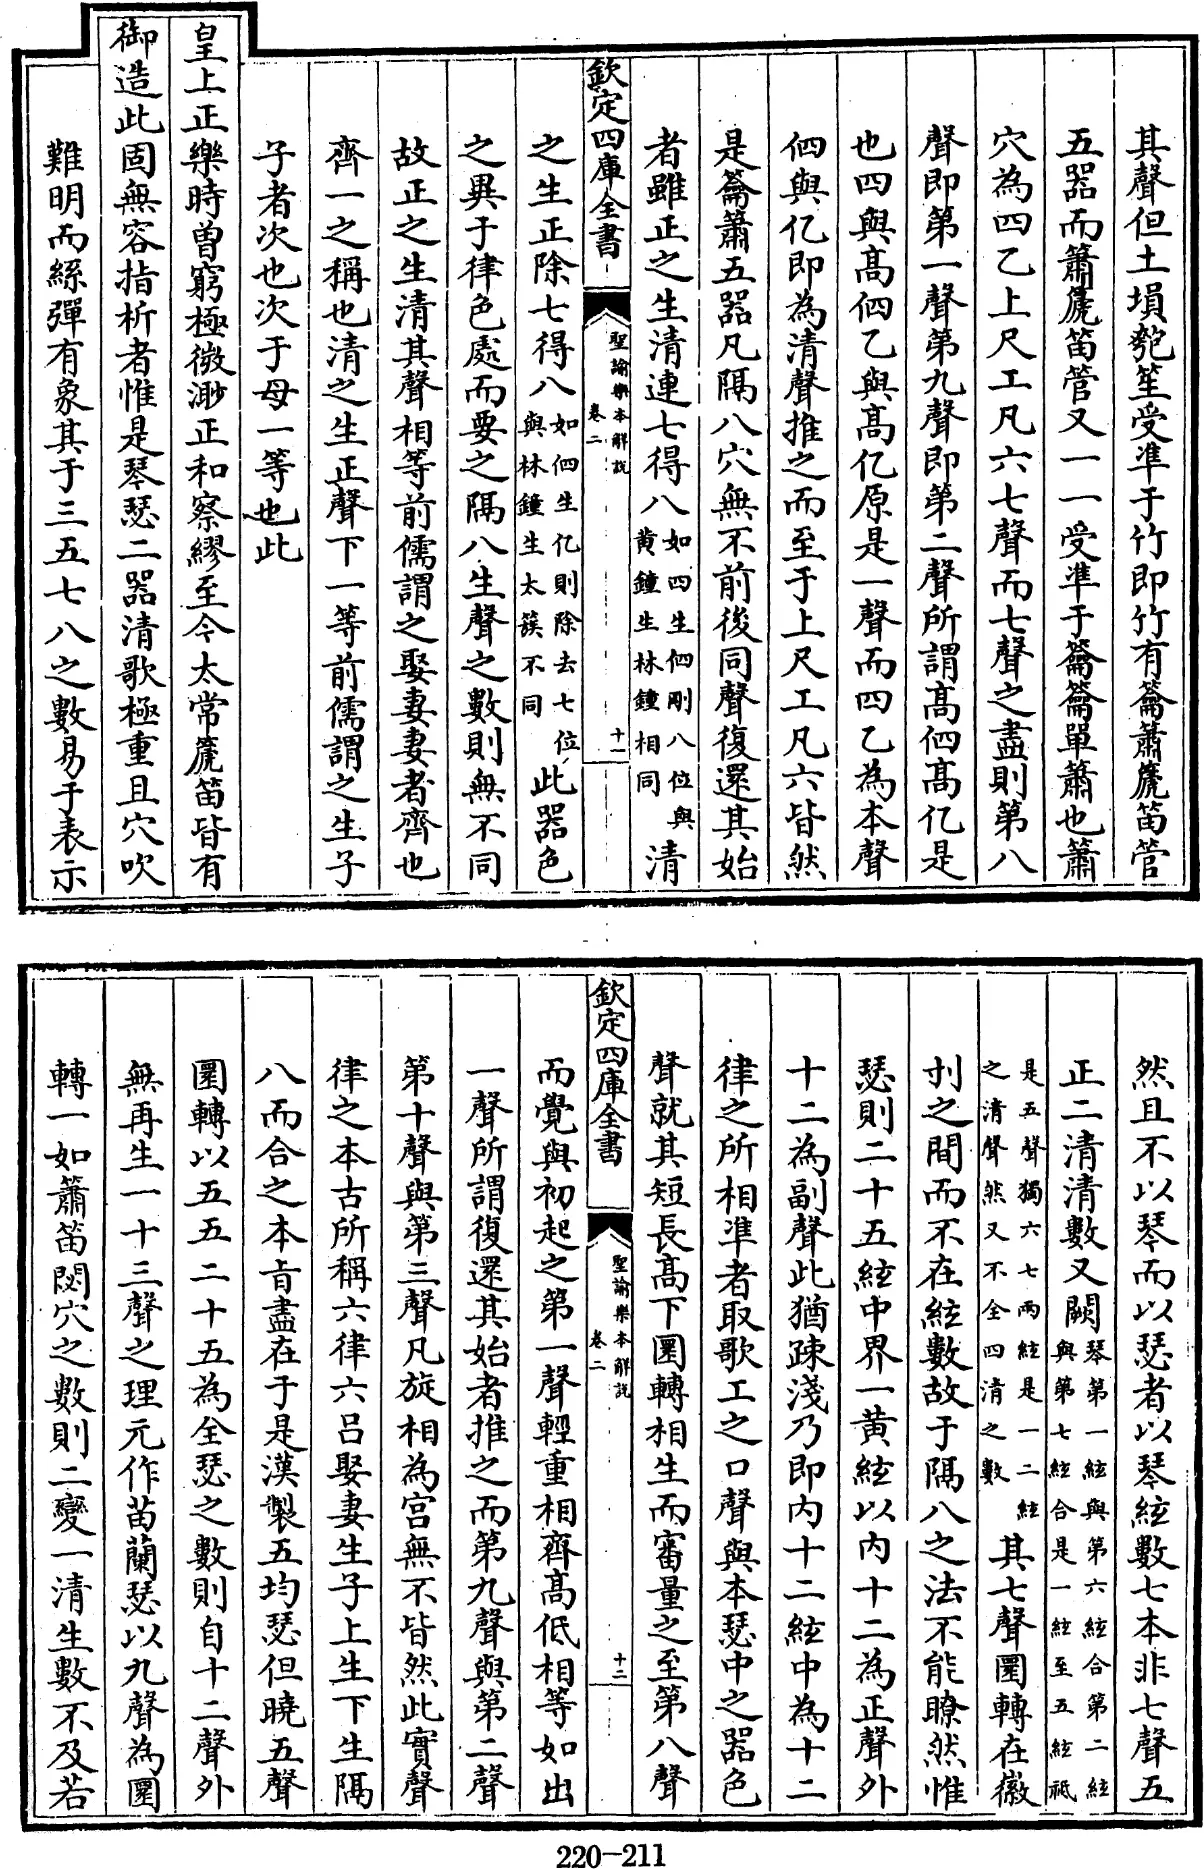 其聲但土塤匏笙受準于竹即竹有籥簫篪笛管
五器而簫篪笛管又一一受準于籥籥單簫也簫
穴為四乙上尺工凡六七聲而七聲之盡則第八
聲即第一聲第九聲即第二聲所謂高伵高亿是
也四與高伵乙與高亿原是一聲而四乙為本聲
伵與亿即為清聲推之而至于上尺工凡六皆然
是籥簫五器凡隔八穴無不前後同聲復還其始
者雖正之生清連七得八如四生伵剛八位與黄鐘生林鐘相同清
欽定四庫全書 聖諭樂本解説 卷二 十一
之生正除七得八如伵生亿則除去七位與林鐘生太簇不同此器色
之異于律色處而要之隔八生聲之數則無不同
故正之生清其聲相等前儒謂之娶妻妻者齊也
齊一之稱也清之生正聲下一等前儒謂之生子
子者次也次于母一等也此
皇上正樂時曾窮極微渺正和察繆至今太常篪笛皆有
御造此固無容指析者惟是琴瑟二器清歌極重且穴吹
難明而絲彈有象其于三五七八之數易于表示
然且不以琴而以瑟者以琴絃數七本非七聲五
正二清清數又闕琴第一絃與第六絃合第二絃與第七絃合是一絃至五絃祗
是五聲獨六七兩絃是一二絃之清聲然又不全四清之數其七聲圜轉在徽
刌之間而不在絃數故于隔八之法不能瞭然惟
瑟則二十五絃中界一黄絃以内十二為正聲外
十二為副聲此猶疎淺乃即内十二絃中為十二
律之所相準者取歌工之口聲與本瑟中之器色
聲就其短長高下圜轉相生而審量之至第八聲
欽定四庫全書 聖諭樂本解説 卷二 十二
而覺與初起之第一聲輕重相齊高低相等如出
一聲所謂復還其始者推之而第九聲與第二聲
第十聲與第三聲凡旋相為宫無不皆然此實聲
律之本古所稱六律六吕娶妻生子上生下生隔
八而合之本㫖盡在于是漢製五均瑟但曉五聲
圜轉以五五二十五為全瑟之數則自十二聲外
無再生一十三聲之理元作苗蘭瑟以九聲為圜
轉一如簫笛閟穴之數則二變一清生數不及若
220-211